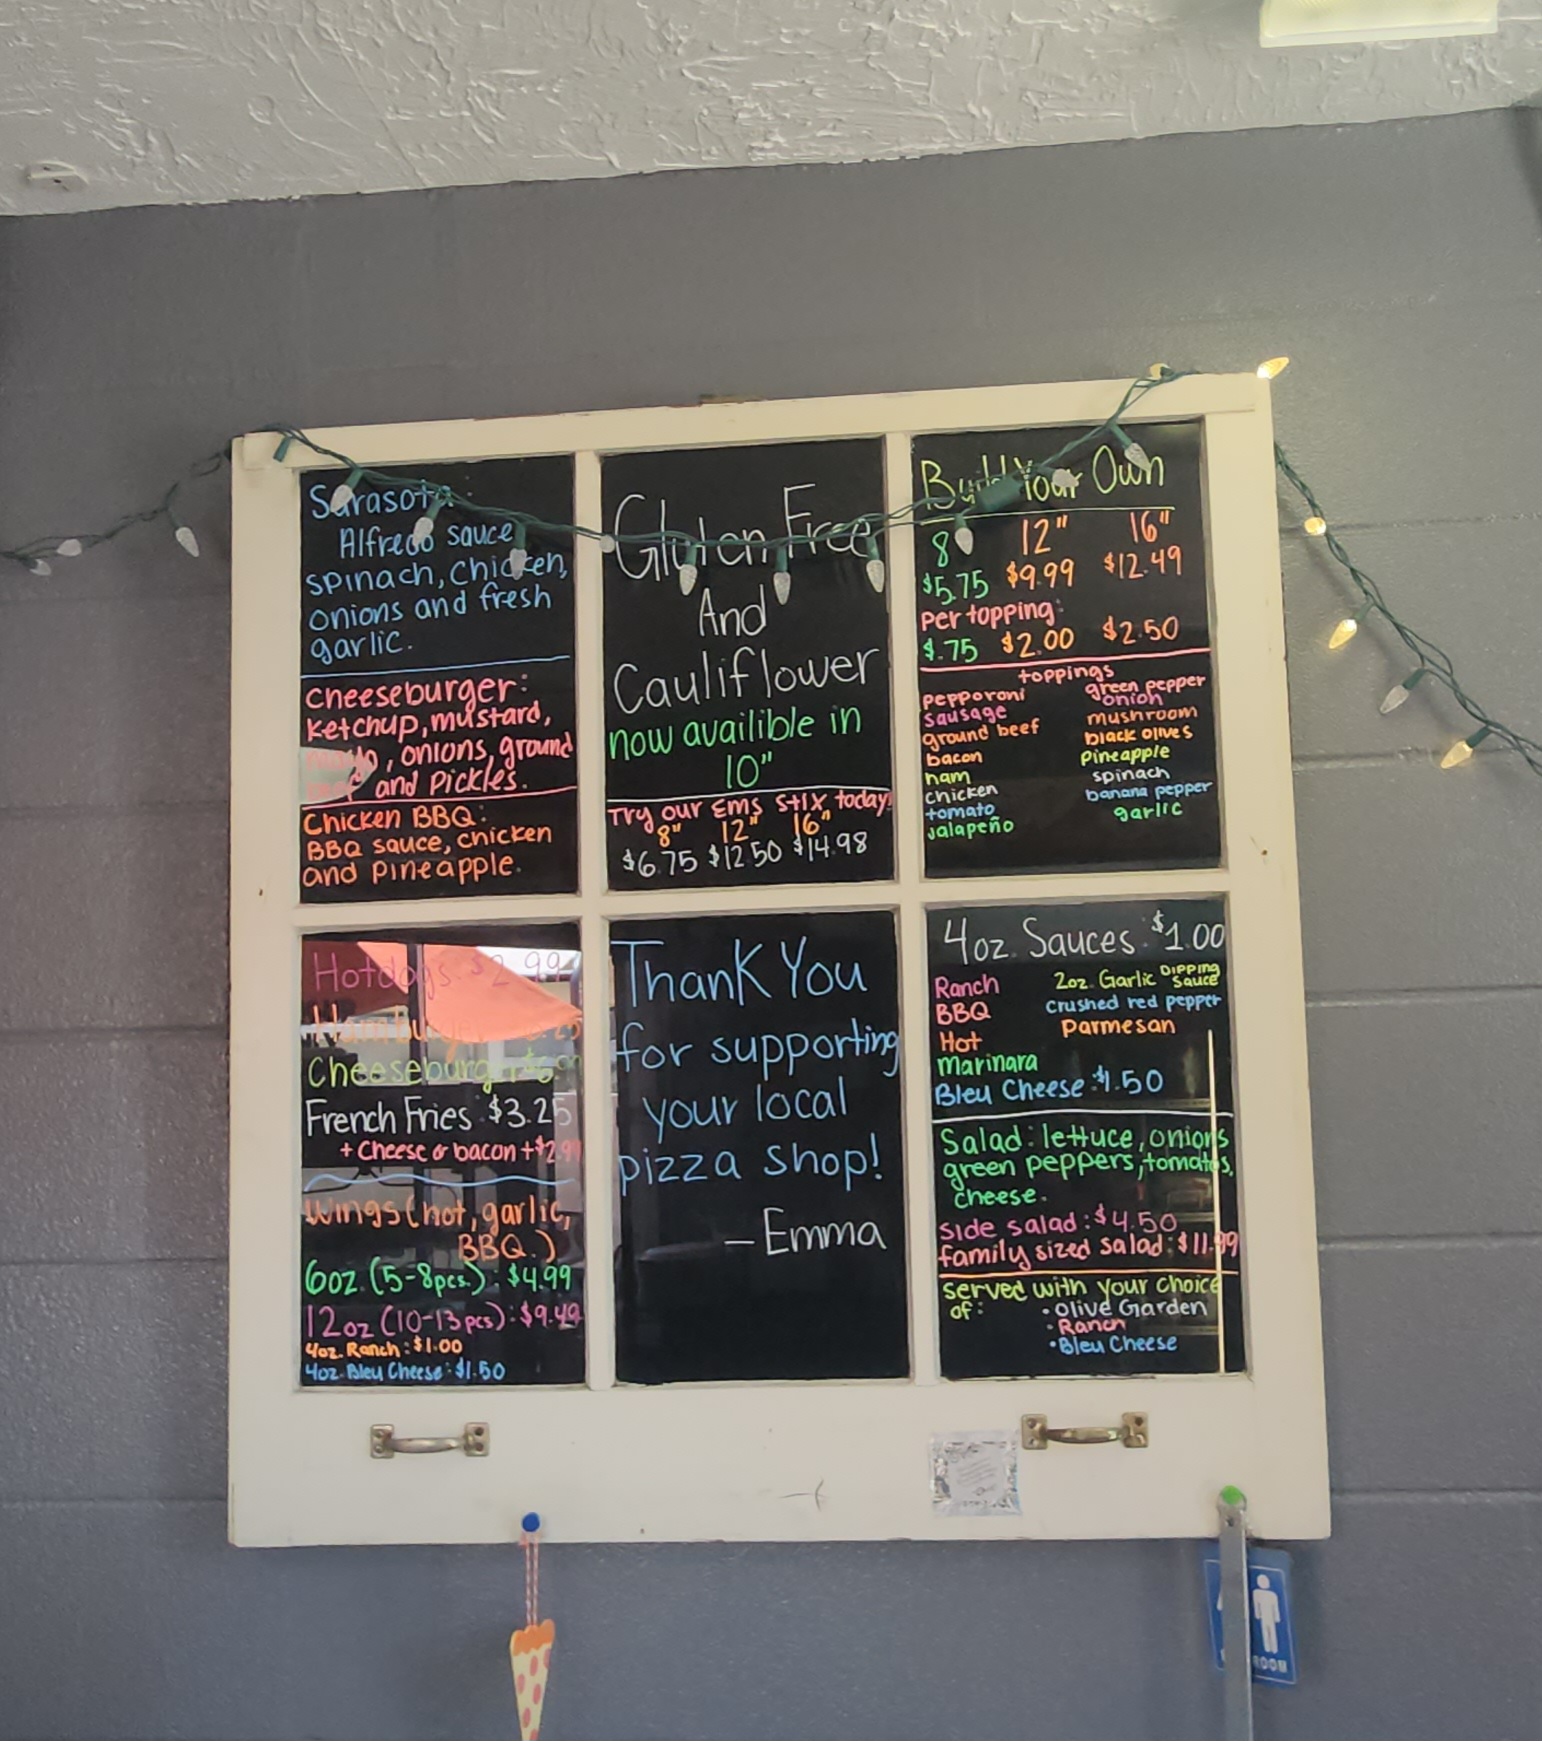 Sarasota:
Alfredo sauce
spinach, chicken,
onions and fresh
garlic.
Cheeseburger:
Ketchup, mustard,
, onions, ground
beef and Pickles.
Chicken BBQ:
BBQ sauce, chicken
and pineapple.
Gluten Free
And
Cauliflower
now availible in
10"
Try our Ems Stix today!
8" 12" 16"
$6.75 $12.50 $14.98
Build Your Own
8 12" 16"
$5.75 $9.99 $12.49
Per topping:
$.75 $2.00 $2.50
toppings
pepporoni green pepper
sausage onion
ground beef mushroom
bacon black olives
ham pineapple
chicken spinach
tomato banana pepper
jalapeño garlic
Hotdogs: $2.99
Hamburger
Cheeseburger
French Fries: $3.25
+ Cheese or bacon +$2.99
Wings (hot, garlic,
BBQ.)
6oz. (5-8pcs.): $4.99
12oz (10-13pcs): $9.49
4oz. Ranch: $1.00
4oz. Bleu Cheese: $1.50
Thank You
for supporting
your local
pizza shop!
- Emma
4oz. Sauces: $1.00
Ranch 2oz. Garlic Dipping Sauce
BBQ crushed red pepper
Hot parmesan
Marinara
Bleu Cheese: $1.50
Salad: lettuce, onions
green peppers, tomatos,
cheese.
side salad: $4.50
family sized salad: $11.99
served with your choice
of: • Olive Garden
• Ranch
• Bleu Cheese